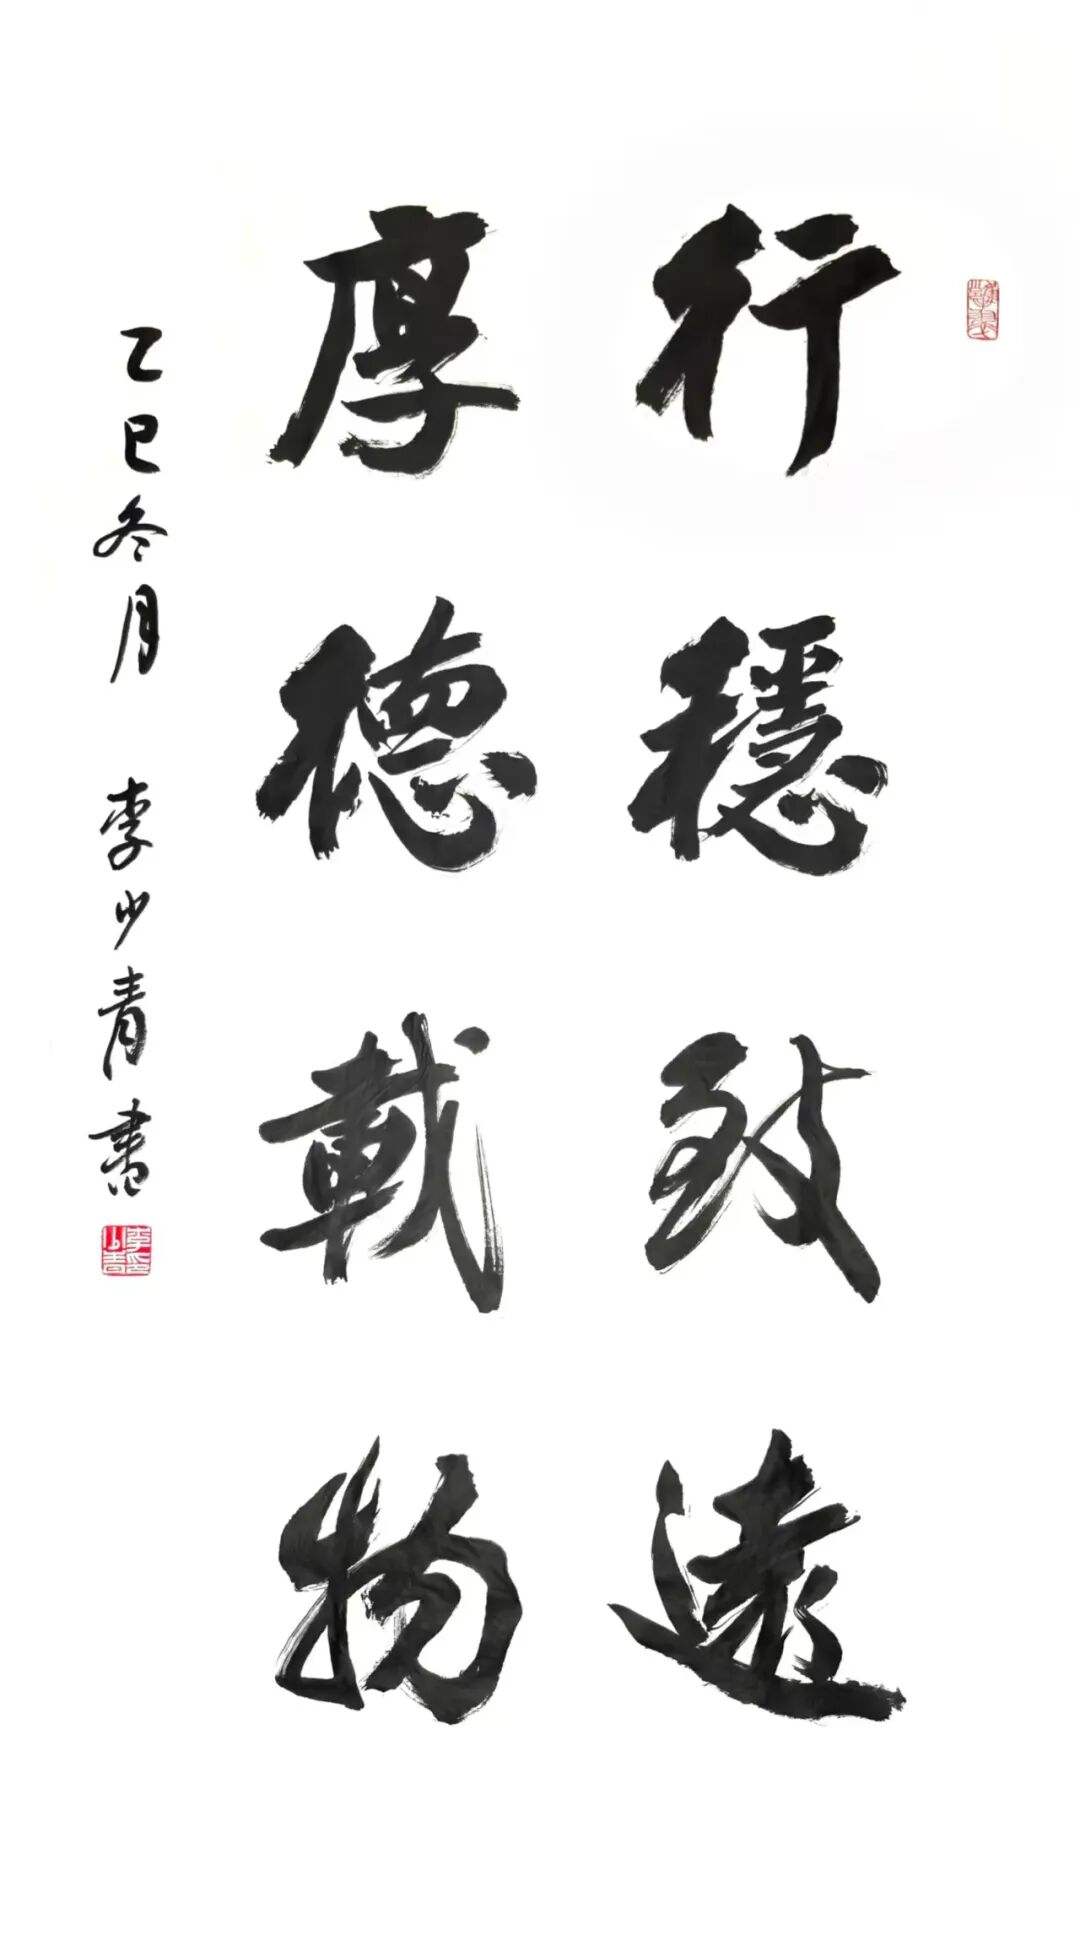 行穩致遠
厚德載物
乙巳冬月 李少青書
李少青印